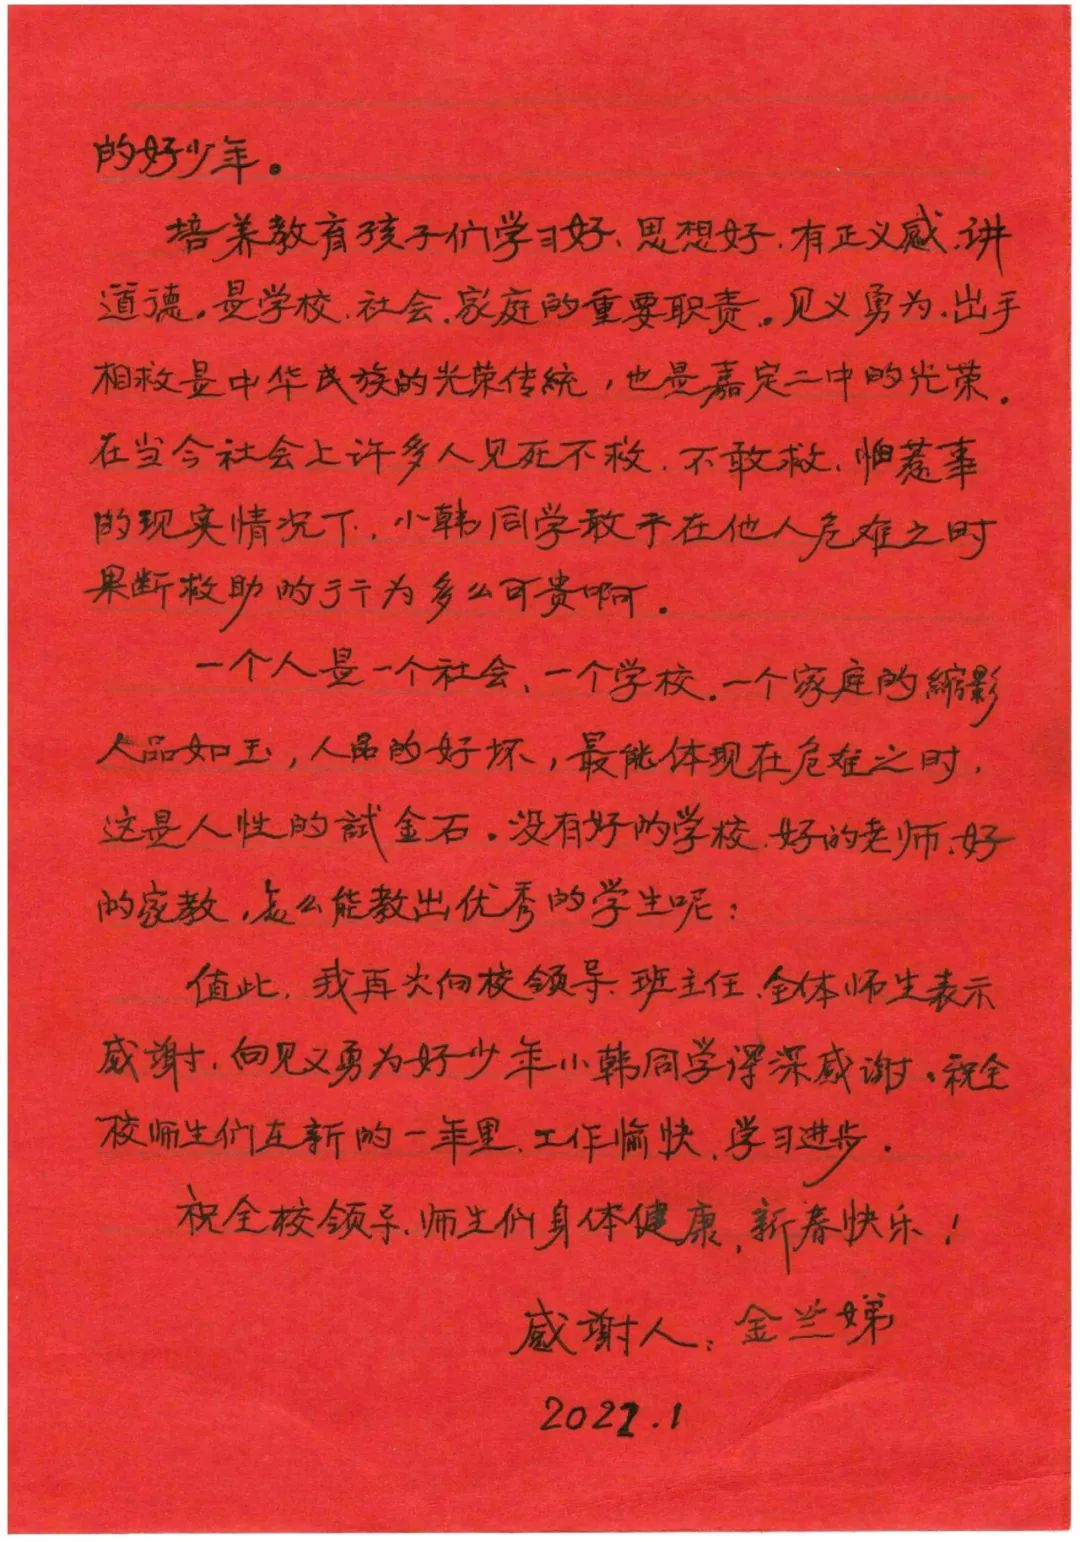 的好少年。
培养教育孩子们学习好、思想好、有正义感、讲
道德。是学校、社会、家庭的重要职责。见义勇为、出手
相救是中华民族的光荣传統，也是嘉定二中的光荣。
在当今社会上许多人见死不救、不敢救、怕惹事
的现实情况下、小韩同学敢于在他人危难之时
果断救助的行为多么可贵啊。
一个人是一个社会、一个学校、一个家庭的縮影
人品如玉，人品的好坏，最能体现在危难之时，
这是人性的試金石。没有好的学校、好的老师、好
的家教，怎么能教出优秀的学生呢：
值此、我再次向校领导、班主任、全体师生表示
感谢、向见义勇为好少年小韩同学深深感谢。祝全
校师生们在新的一年里、工作愉快、学习进步．
祝全校领导、师生们身体健康、新春快乐！
感谢人：金兰娣
2022.1